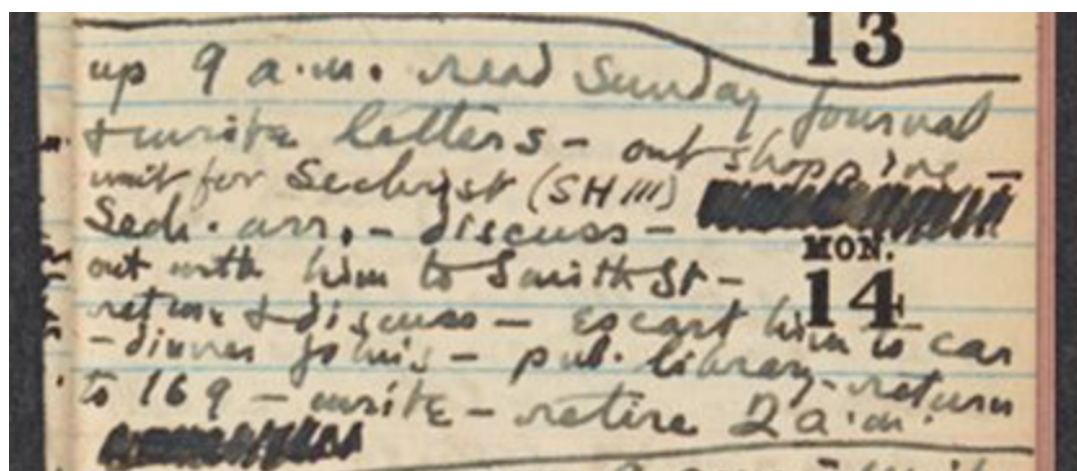 13
up 9 a.m. read Sunday Journal
+ write letters - out shopping -
wait for Sechrist (SH III)
Sech. arr. - discuss -
MON.
14
out with him to Smith St -
return & discuss - escort him to car
- dinner John's - pub. library - return
to 169 - write - retire 2 a.m.